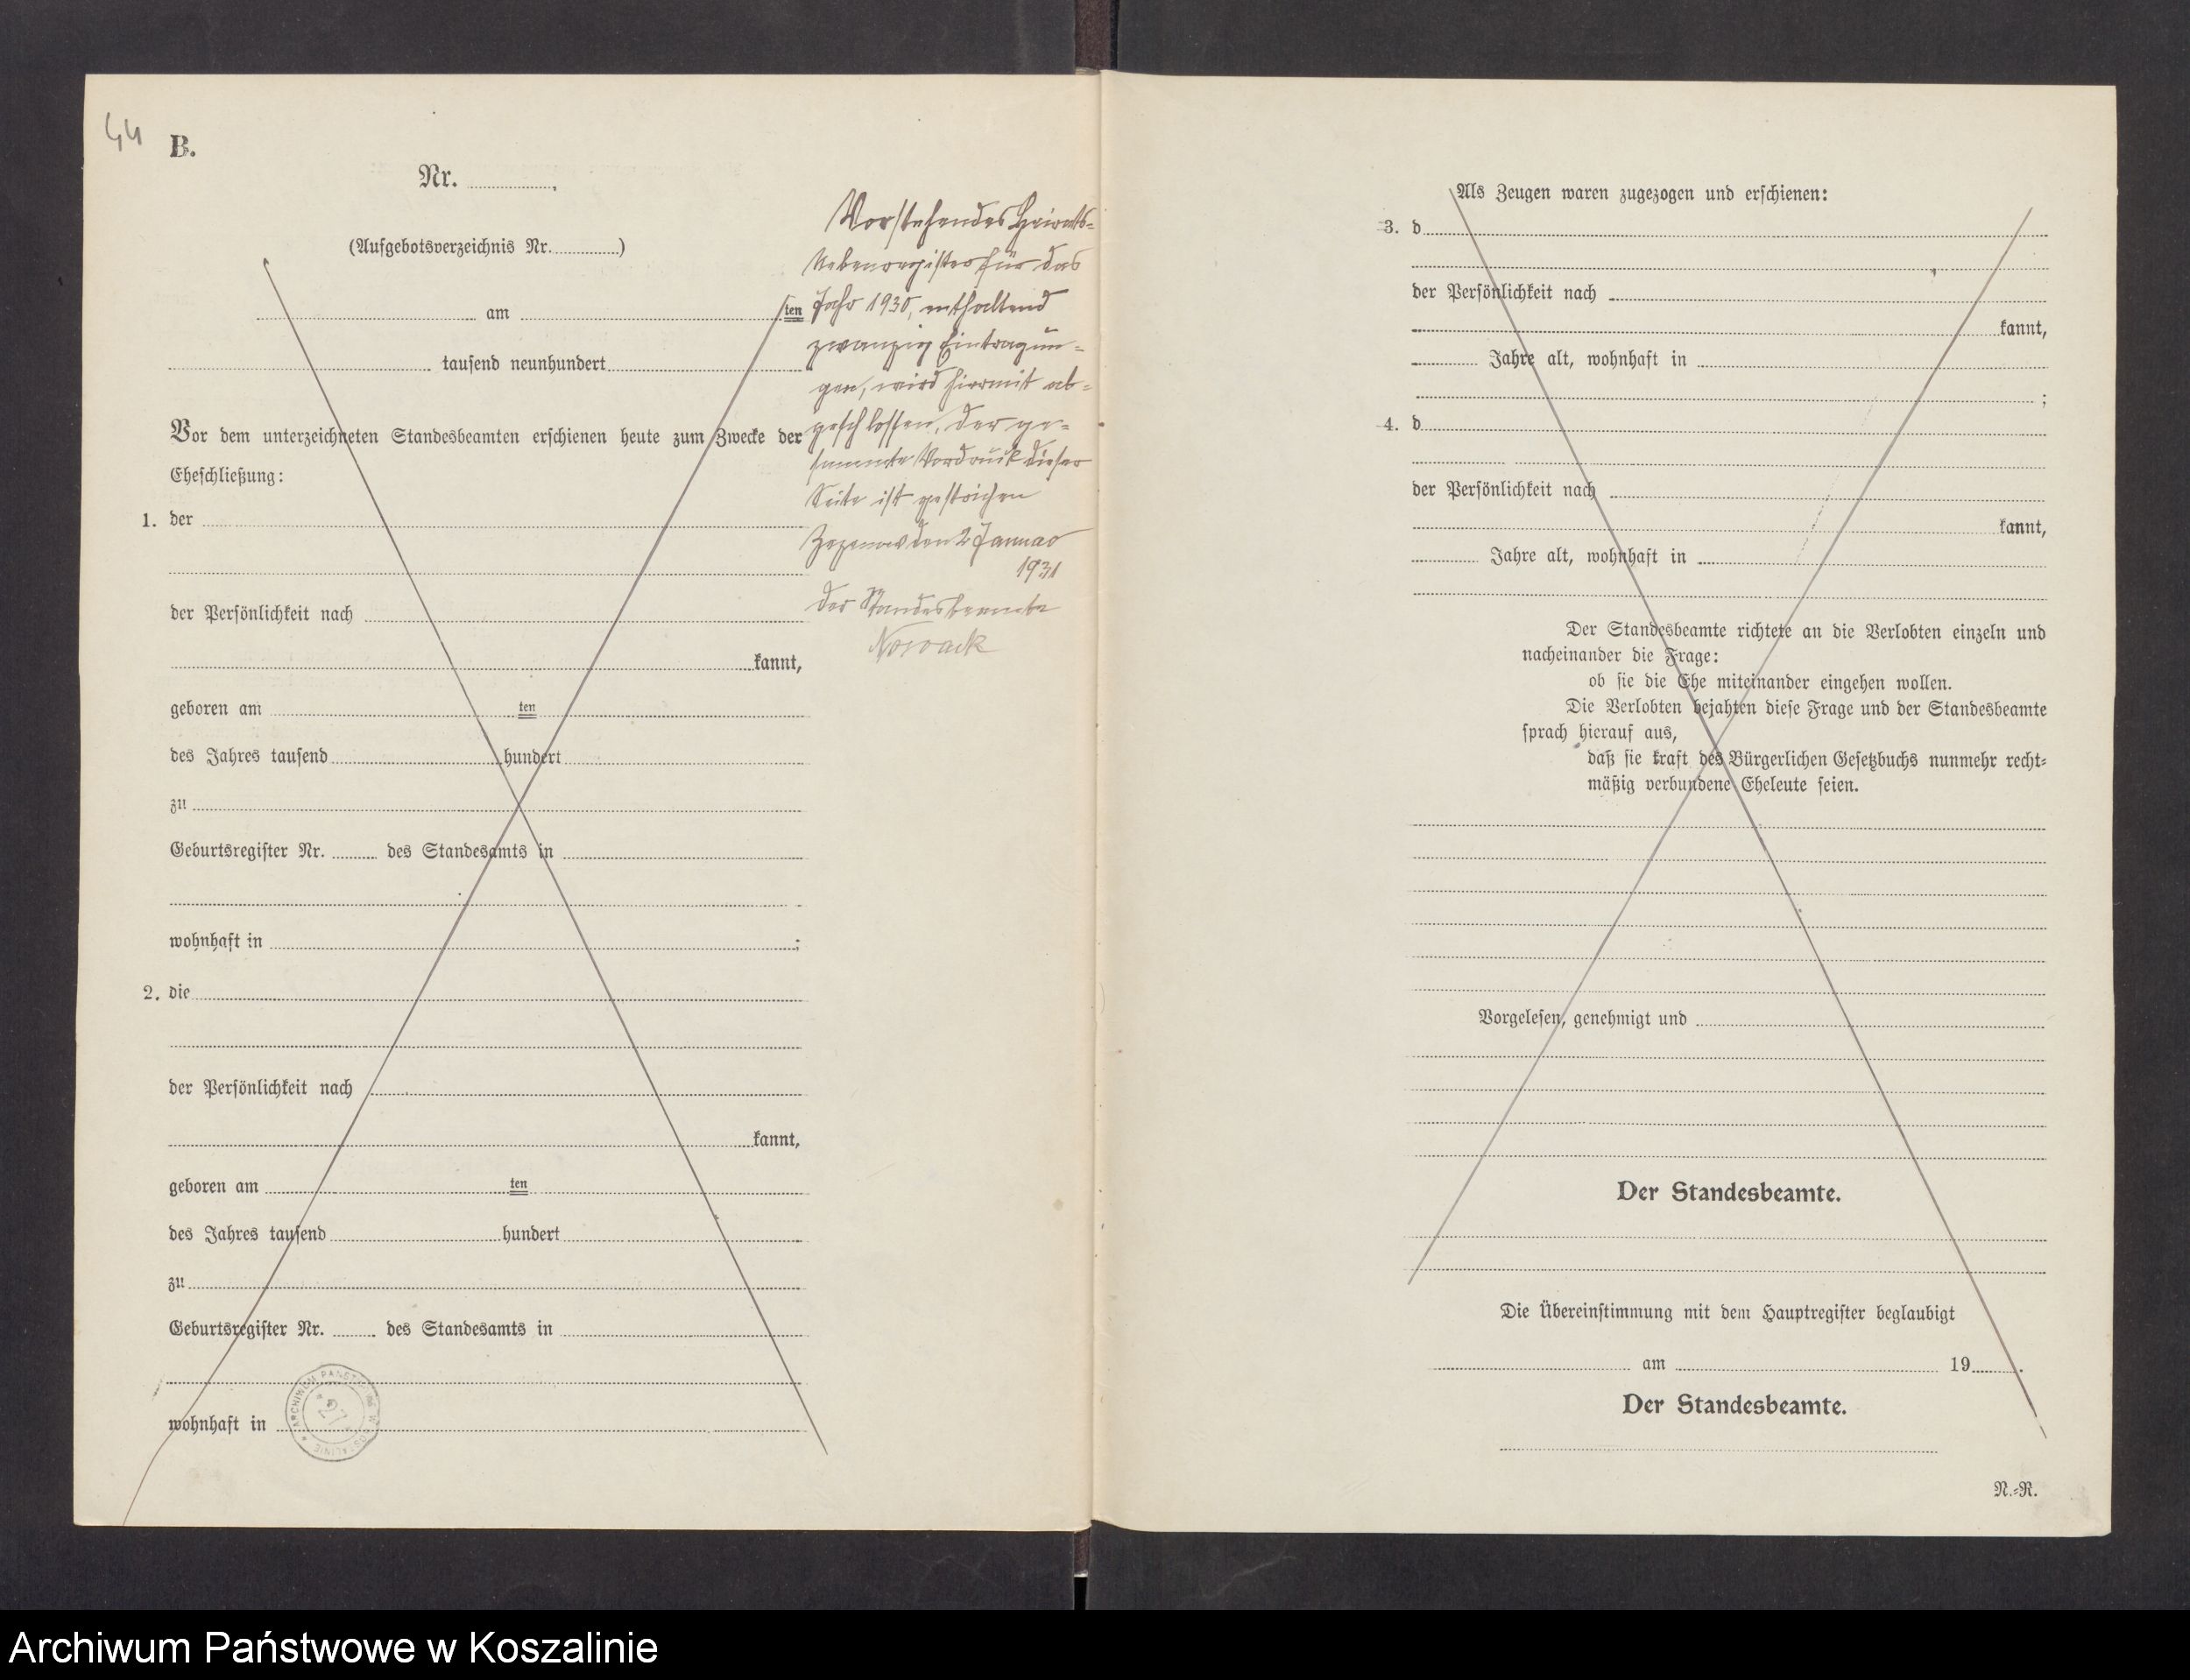 44
B.
Nr. ............
(Aufgebotsverzeichnis Nr. ............)
am ten
tausend neunhundert
Vor dem unterzeichneten Standesbeamten erschienen heute zum Zwecke der
Eheschließung:
1. der
der Persönlichkeit nach
kannt,
geboren am ten
des Jahres tausend hundert
zu
Geburtsregister Nr. des Standesamts in
wohnhaft in ;
2. die
der Persönlichkeit nach
kannt,
geboren am ten
des Jahres tausend hundert
zu
Geburtsregister Nr. des Standesamts in
wohnhaft in
ARCHIWUM PAŃSTWOWE W KOSZALINIE
27
Vorstehendes Heirats-
Nebenregister für das
Jahr 1930, enthaltend
zwanzig Eintragun-
gen, wird hiermit ab-
geschlossen, der ge-
sammte Vordruck dieser
Seite ist gestrichen
Zezenow den 2 Januar
1931
Der Standesbeamte
Nowack
Als Zeugen waren zugezogen und erschienen:
3. d
der Persönlichkeit nach
kannt,
Jahre alt, wohnhaft in
;
4. d
der Persönlichkeit nach
kannt,
Jahre alt, wohnhaft in
Der Standesbeamte richtete an die Verlobten einzeln und
nacheinander die Frage:
ob sie die Ehe miteinander eingehen wollen.
Die Verlobten bejahten diese Frage und der Standesbeamte
sprach hierauf aus,
daß sie kraft des Bürgerlichen Gesetzbuchs nunmehr recht-
mäßig verbundene Eheleute seien.
Vorgelesen, genehmigt und
Der Standesbeamte.
Die Übereinstimmung mit dem Hauptregister beglaubigt
am 19 .
Der Standesbeamte.
N.-R.
Archiwum Państwowe w Koszalinie